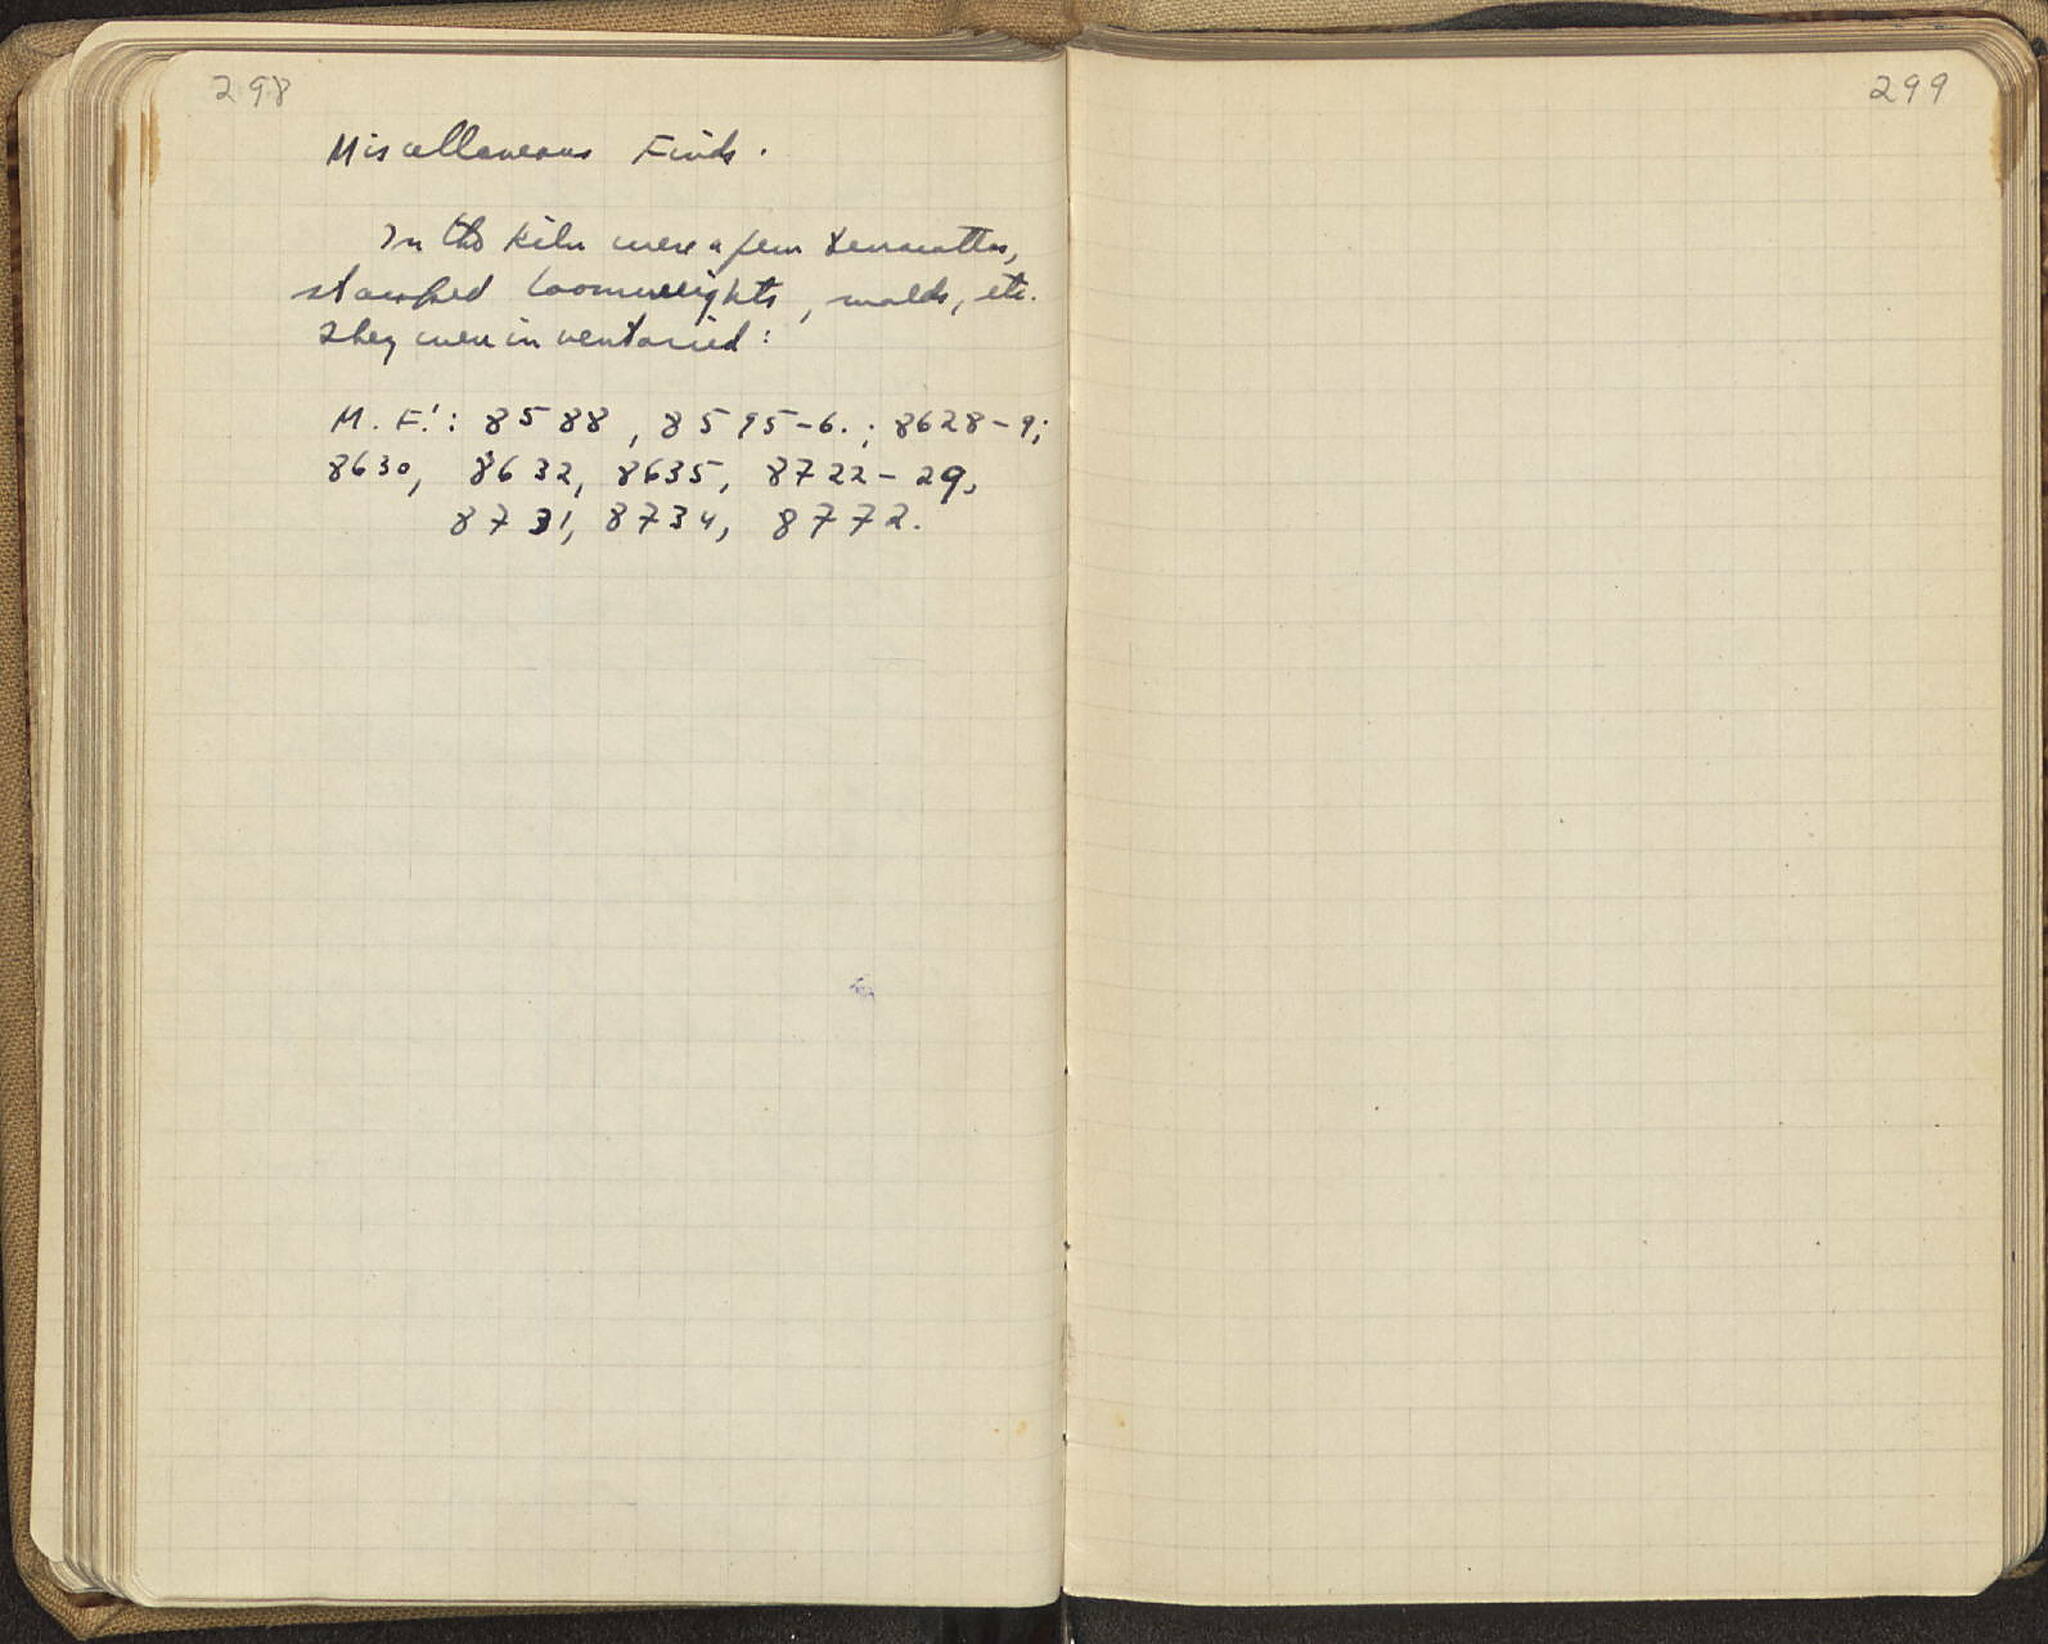 298
Miscellaneous Finds.
In the kiln were a few terracottas,
stamped loomweights, molds, etc.
They were inventoried:
M. F.: 8588, 8595-6.; 8628-9;
8630, 8632, 8635, 8722-29,
8731, 8734, 8772.
299